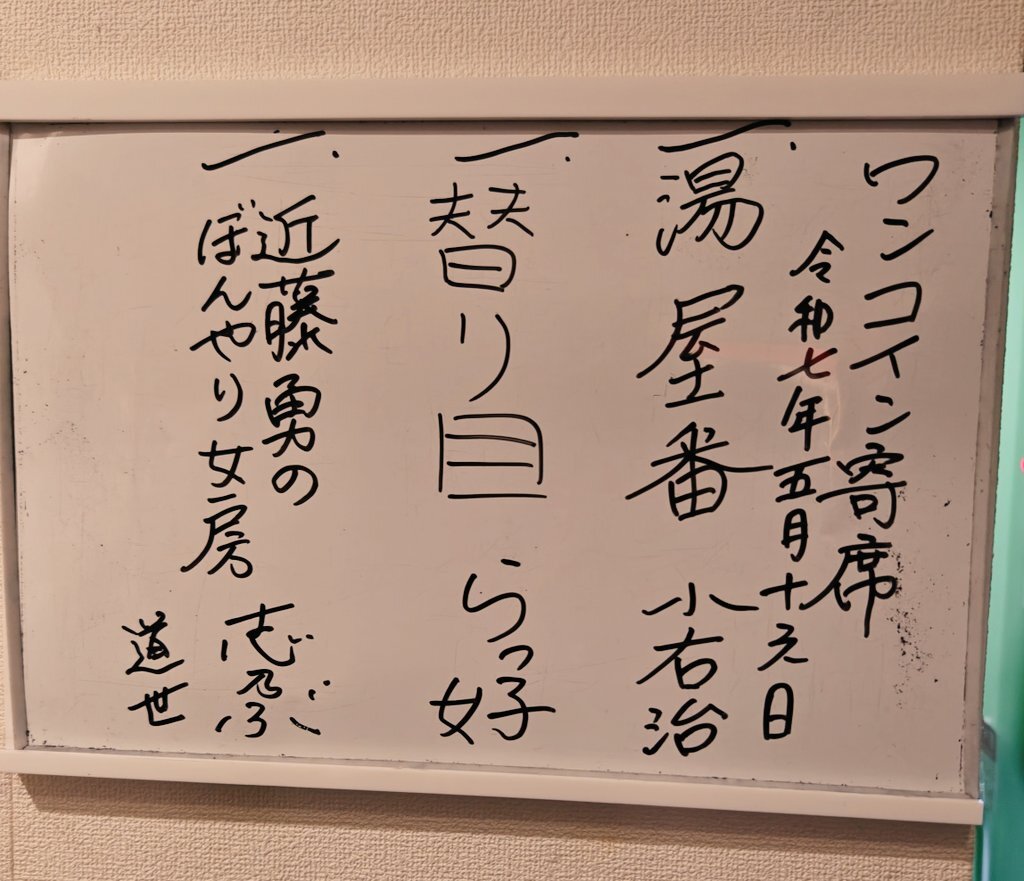 ワンコイン寄席
令和七年五月
一.湯屋番 小右治
一.替り目 らっ好
一.近藤勇の
ぼんやり女房
道世